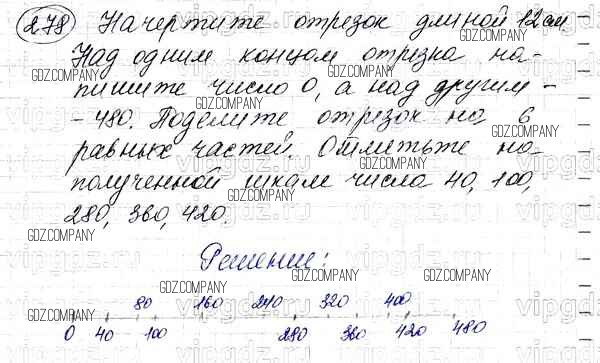 278 Начертите отрезок длиной 12 см.
Над одним концом отрезка на-
пишите число 0, а над другим -
- 480. Поделите отрезок на 6
равных частей. Отметьте на
полученной шкале числа 40, 100,
280, 360, 420.
Решение:
80 160 240 320 400
0 40 100 280 360 420 480
GDZ.COMPANY
vipgdz.ru